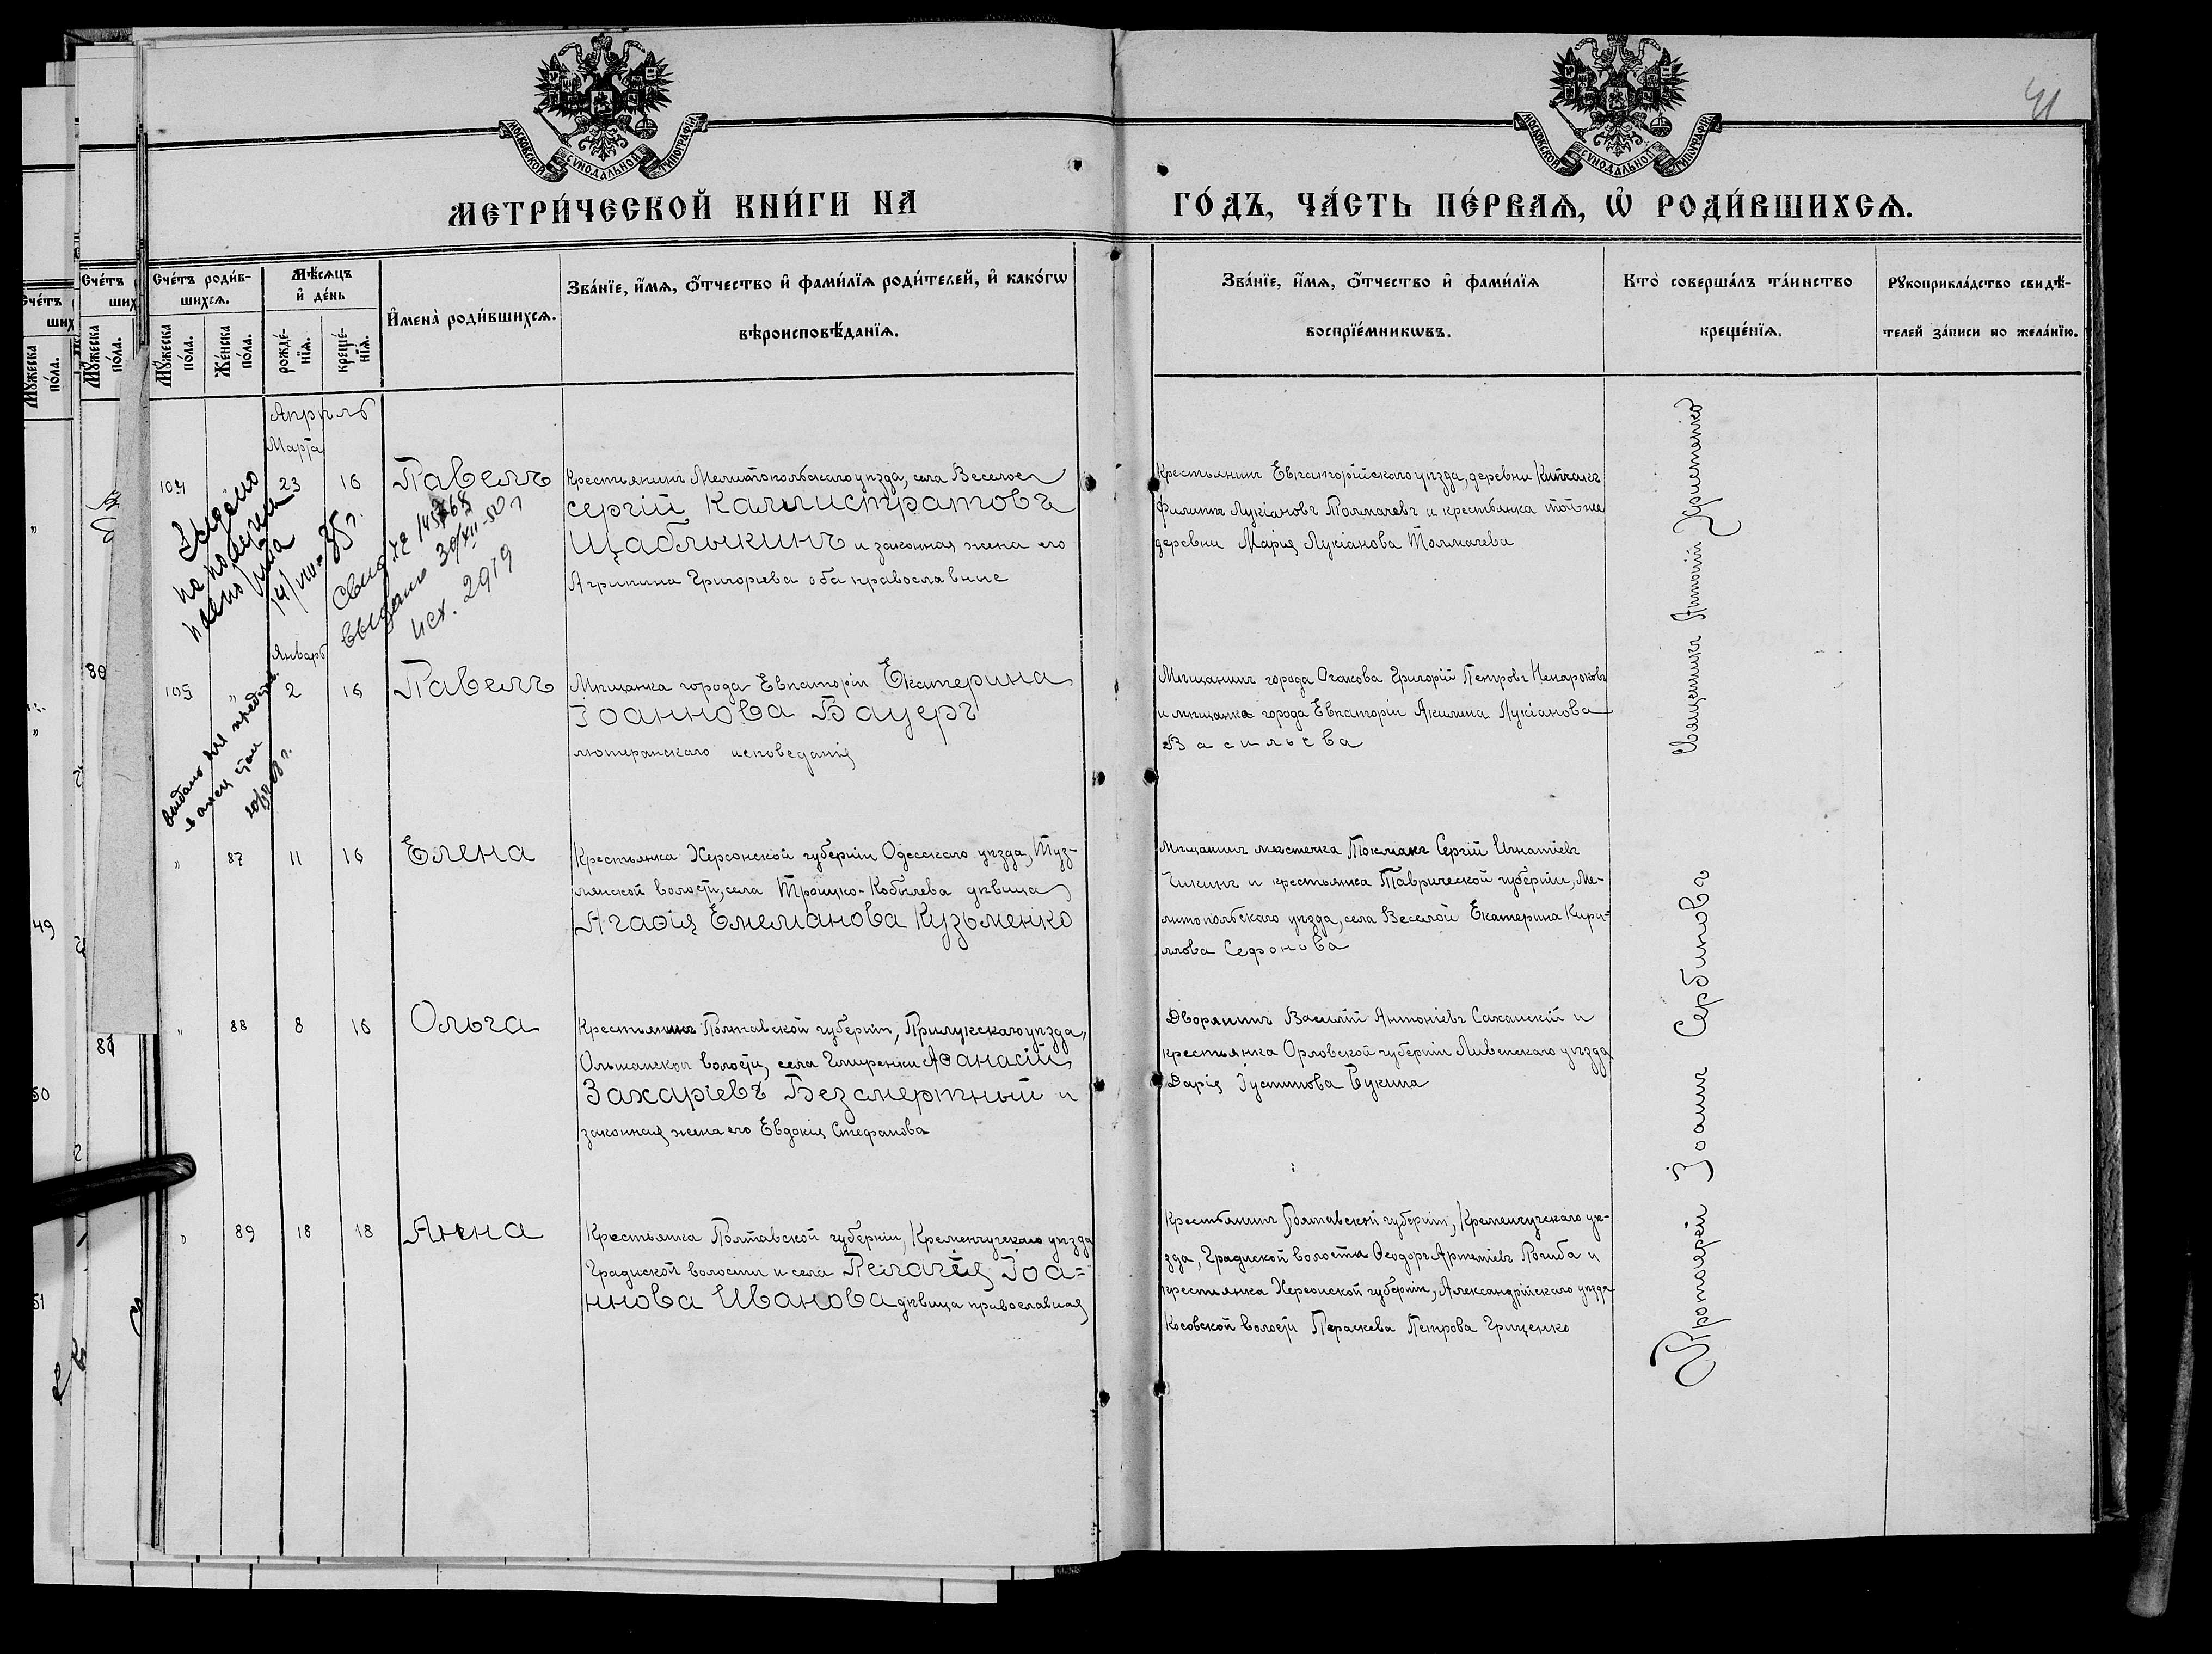 МОСКОВСКОЙ СѴНОДАЛЬНОЙ ТИПОГРАФІИ
МОСКОВСКОЙ СѴНОДАЛЬНОЙ ТИПОГРАФІИ
41
МЕТРИ́ЧЕСКОЙ КНИ́ГИ НА
ГО́ДЪ, ЧА́СТЬ ПЕ́РВАѦ, Ѡ҆ РОДИ́ВШИХСѦ.
Сче́тъ роди́в-
шихсѧ.
Мꙋ́жеска по́ла.
Же́нска по́ла.
Мѣ́сѧцъ
и҆ де́нь
рожде́-
нїѧ.
креще́-
нїѧ.
И҆мена̀ роди́вшихсѧ.
Зва́нїе, и҆́мѧ, ѻ҆́тчество и҆ фами́лїѧ роди́телей, и҆ како́гѡ
вѣроисповѣ́данїѧ.
Зва́нїе, и҆́мѧ, ѻ҆́тчество и҆ фами́лїѧ
воспрїе́мникѡвъ.
Кто̀ соверша́лъ та́инство
креще́нїѧ.
Рꙋкоприкла́дство свидѣ́-
телей за́писи по жела́нїю.
Апрѣль
Марта
104
23
16
Павелъ
Крестьянинъ Мелитопольскаго уѣзда, села Веселое
Сергій Каллистратовъ
Щаблыкинъ и законная жена его
Агрипина Григорьева оба православные
Крестьянинъ Евпаторійскаго уѣзда, деревни Китчакъ
Филиппъ Лукіановъ Толмачевъ и крестьянка той же
деревни Марія Лукіанова Толмачева
14/VIII-35 г.
выдано 30/XII-50 г
исх. 2919
Январь
105
"
2
16
Павелъ
Мѣщанка города Евпаторіи Екатерина
Іоаннова Бауеръ
лютеранскаго исповеданія
Мѣщанинъ города Очакова Григорій Петровъ Ненароковъ
и мѣщанка города Евпаторіи Акилина Лукіанова
Васильева
"
87
11
16
Елена
Крестьянка Херсонской губерніи Одесскаго уѣзда, Туз-
лянской волости, села Троицко-Кобылева дѣвица
Агафія Емелианова Кузьменко
Мѣщанинъ мѣстечка Токмакъ Сергій Игнатіевъ
Чикинъ и крестьянка Таврической губерніи, Ме-
литопольскаго уѣзда, села Веселой Екатерина Кири-
лова Сафонова
"
88
8
16
Ольга
Крестьянинъ Полтавской губерніи, Прилукскаго уѣзда,
Ольшанской волости, села Гмиренки Аѳанасій
Захаріевъ Безсмертный и
законная жена его Евдокія Стефанова
Дворянинъ Василій Антоніевъ Саханскій и
крестьянка Орловской губерніи Ливенскаго уѣзда
Дарія Іустинова Букина
"
89
18
18
Анна
Крестьянка Полтавской губерніи, Кременчугскаго уѣзда
Градиской волости и села Пелагія Іоа-
ннова Иванова дѣвица православная
Крестьянинъ Полтавской губерніи, Кременчугскаго уѣ-
зда, Градиской волости Ѳеодоръ Артеміевъ Погиба и
крестьянка Херсонской губерніи, Александрійскаго уѣзда
Косовской волости Параскева Петрова Гриценко
Протоіерей Іоаннъ Сербиновъ
Священникъ Антоній